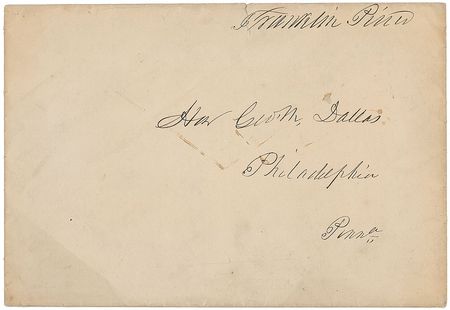 Franklin Pierce
Hon Geo. M. Dallas
Philadelphia
Penna